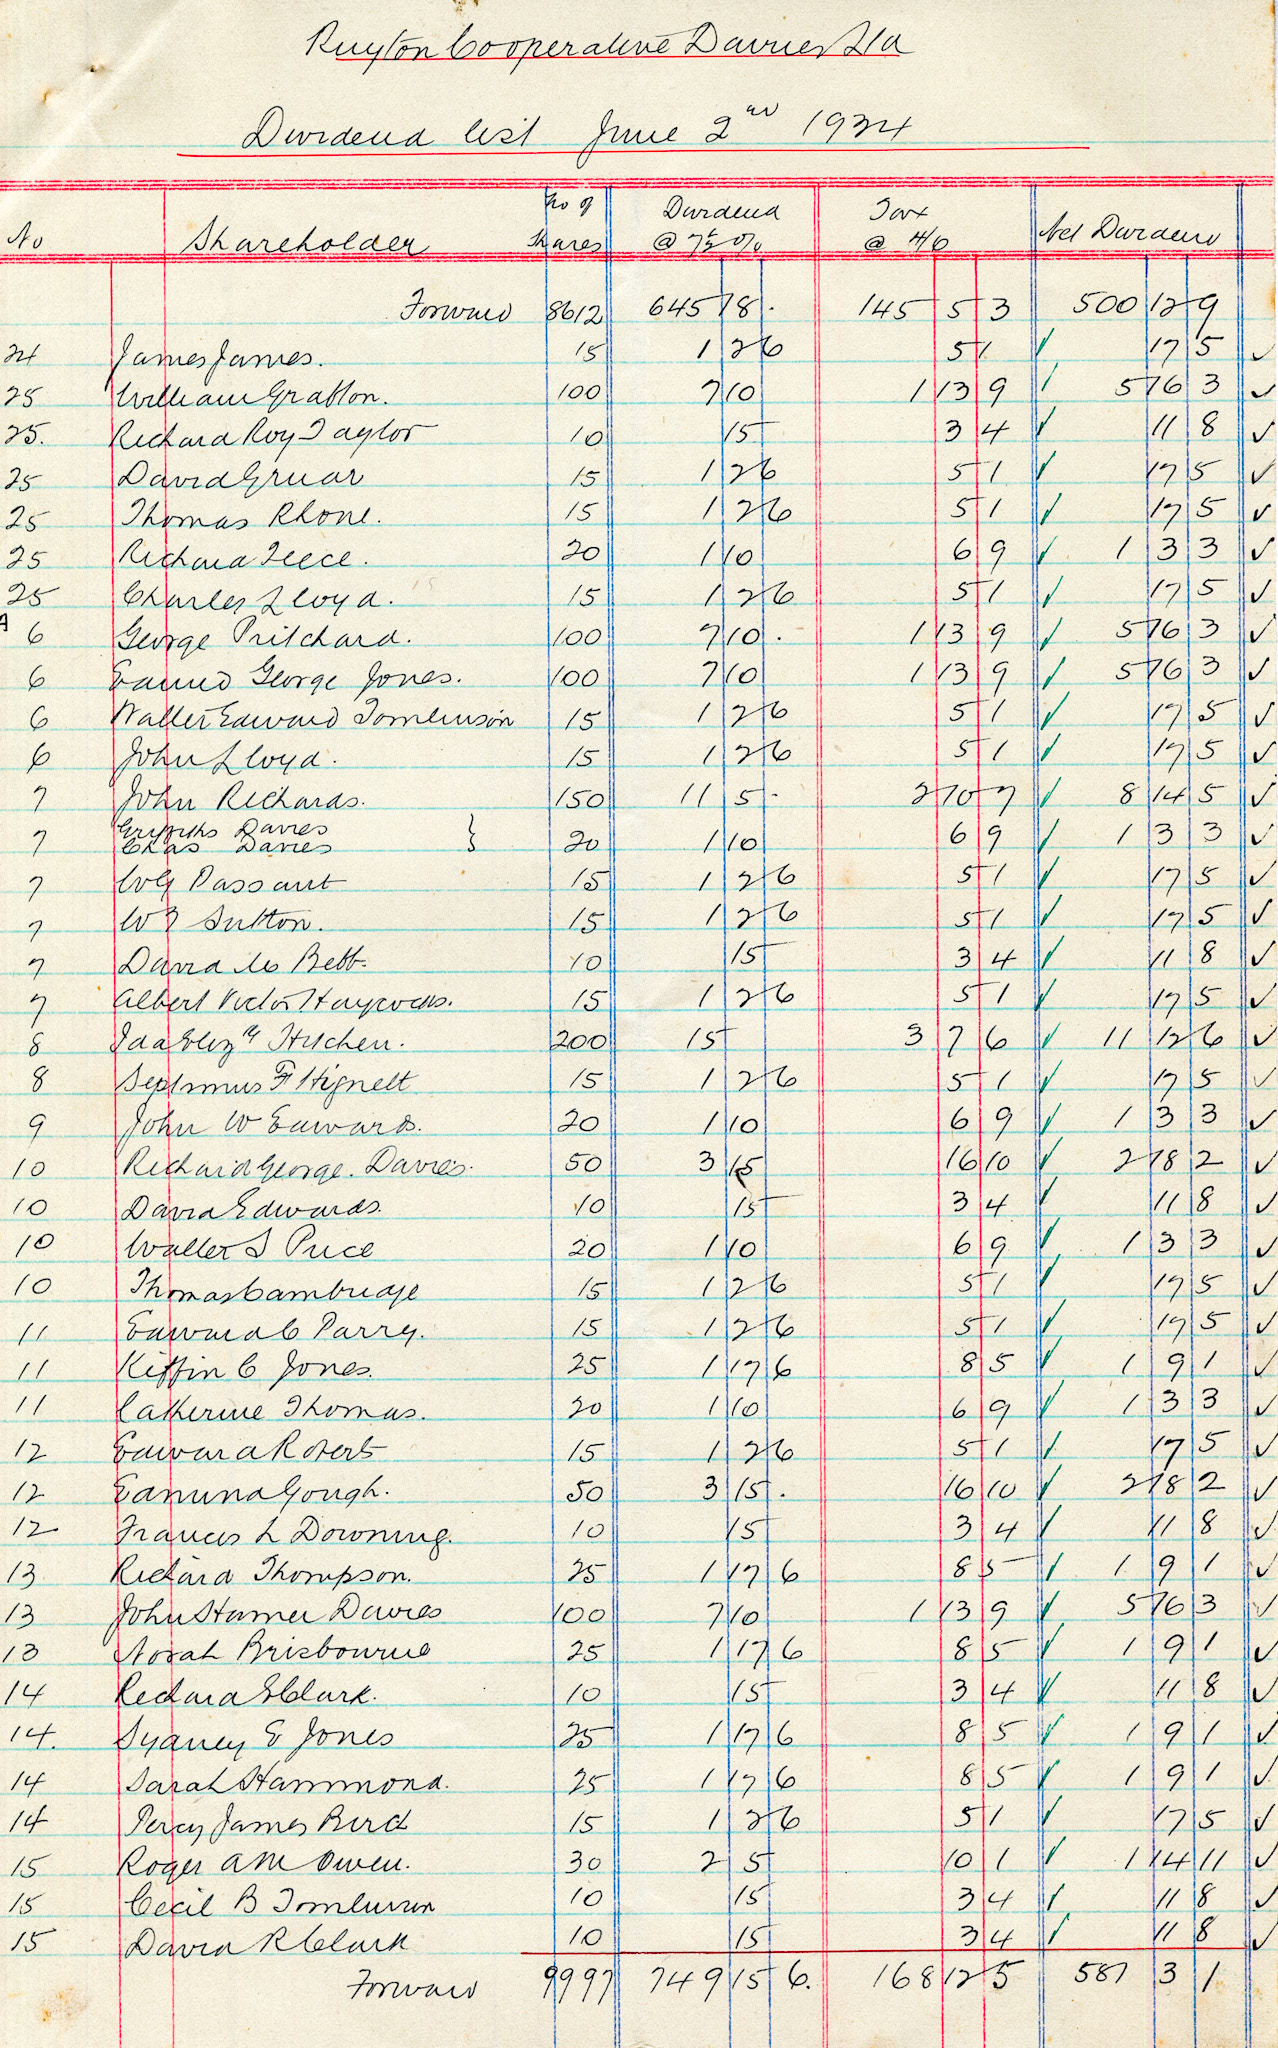 Ruyton Cooperative Dairies Ltd
Dividend list June 2nd 1934
No Shareholder No of Shares Dividend @ 7½ % Tax @ 4/6 Net Dividend
Forward 8612 645 18 . 145 5 3 500 12 9
24 James James. 15 1 2 6 5 1 17 5
25 William Gratton. 100 7 10 1 13 9 5 16 3
25. Richard Roy Taylor 10 15 3 4 11 8
25 David Gruar 15 1 2 6 5 1 17 5
25 Thomas Rhone. 15 1 2 6 5 1 17 5
25 Richard Teece. 20 1 10 6 9 1 3 3
25 Charles Lloyd. 15 1 2 6 5 1 17 5
A 6 George Pritchard. 100 7 10 . 1 13 9 5 16 3
6 George Jones. 100 7 10 1 13 9 5 16 3
6 Walter Edward Tomlinson 15 1 2 6 5 1 17 5
6 John Lloyd. 15 1 2 6 5 1 17 5
7 John Richards. 150 11 5 - 2 10 7 8 14 5
7 Griffiths Davies
Chas Davies } 20 1 10 6 9 1 3 3
7 WG Passant 15 1 2 6 5 1 17 5
7 Sutton. 15 1 2 6 5 1 17 5
7 David Mc Bebb. 10 15 3 4 11 8
7 Albert Victor Haycocks. 15 1 2 6 5 1 17 5
8 Ida Elizth Hitchen. 200 15 3 7 6 11 12 6
8 Septimus F Hignett 15 1 2 6 5 1 17 5
9 John W Edwards. 20 1 10 6 9 1 3 3
10 Richard George Davies. 50 3 15 16 10 2 18 2
10 David Edwards. 10 15 3 4 11 8
10 Walter S Price 20 1 10 6 9 1 3 3
10 Thomas Cambridge 15 1 2 6 5 1 17 5
11 Edward C Parry. 15 1 2 6 5 1 17 5
11 Kiffin C Jones. 25 1 17 6 8 5 1 9 1
11 Catherine Thomas. 20 1 10 6 9 1 3 3
12 Edward Roberts 15 1 2 6 5 1 17 5
12 Edmund Gough. 50 3 15 . 16 10 2 18 2
12 Francis L Downing. 10 15 3 4 11 8
13 Richard Thompson. 25 1 17 6 8 5 1 9 1
13 John Hamer Davies 100 7 10 1 13 9 5 16 3
13 Norah Brisbourne 25 1 17 6 8 5 1 9 1
14 Richard E Clark. 10 15 3 4 11 8
14. Sydney E Jones 25 1 17 6 8 5 1 9 1
14 Sarah Hammond. 25 1 17 6 8 5 1 9 1
14 Percy James Bird 15 1 2 6 5 1 17 5
15 Roger AM Owen. 30 2 5 10 1 1 14 11
15 Cecil B Tomlinson 10 15 3 4 11 8
15 David R Clark 10 15 3 4 11 8
Forward 9997 749 15 6. 168 12 5 581 3 1